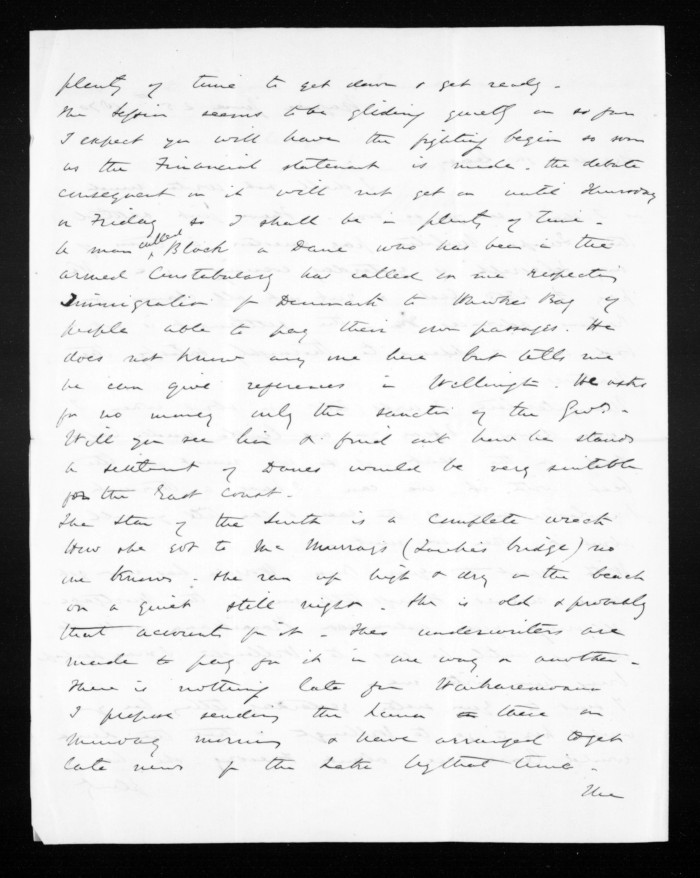 plenty of time to get down & get ready.
The Session seems to be gliding quietly on so far
I expect you will have the fighting begin as soon
as the Financial statement is made. The debate
consequent on it will not get on until Thursday
or Friday so I shall be in plenty of time.
A man called Block a Dane who has been in the
armed Constabulary has called on me respecting
Immigration fr Denmark to Hawkes Bay of
people able to pay their own passages. He
does not know any one here but tells me
he can give references in Wellington. He asks
for no money only the sanction of the Govt.
Will you see him & find out how he stands
a settlement of Danes would be very suitable
for the East Coast.
The Star of the South is a complete wreck
How she got to McMurrays (bridge) no
one knows. She ran up high & dry on the beach
on a quiet still night. She is old & probably
that accounts for it. The underwriters are
made to pay for it in one way or another.
There is nothing late from Waikaremoana
I propose sending the Luna there on
Monday morning & have arranged to get
late news of the Lake by that time.
The